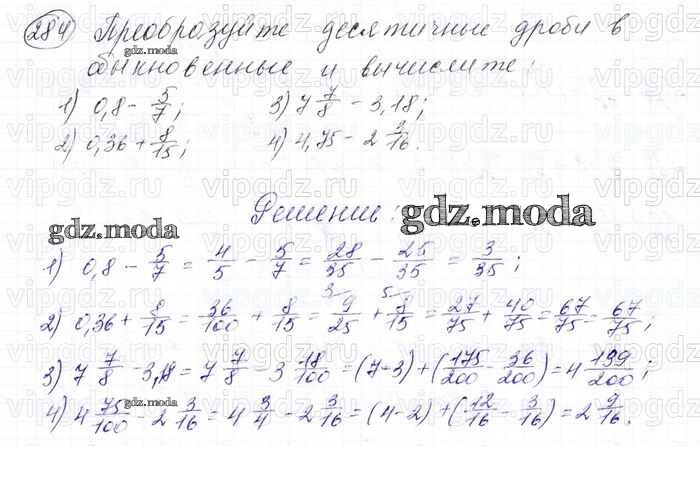 284 Преобразуйте десятичные дроби в
обыкновенные и вычислите:
1) 0,8 - 5/7; 3) 7 7/8 - 3,18;
2) 0,36 + 8/15; 4) 4,75 - 2 3/16.
Решение:
gdz.moda
gdz.moda
1) 0,8 - 5/7 = 4/5 - 5/7 = 28/35 - 25/35 = 3/35;
2) 0,36 + 8/15 = 36/100 + 8/15 = 9/25 3/ + 8/15 5/ = 27/75 + 40/75 = 67/75 = 67/75;
3) 7 7/8 - 3,18 = 7 7/8 - 3 18/100 = (7-3) + (175/200 - 36/200) = 4 139/200;
gdz.moda
4) 4 75/100 - 2 3/16 = 4 3/4 - 2 3/16 = (4-2) + (12/16 - 3/16) = 2 9/16.